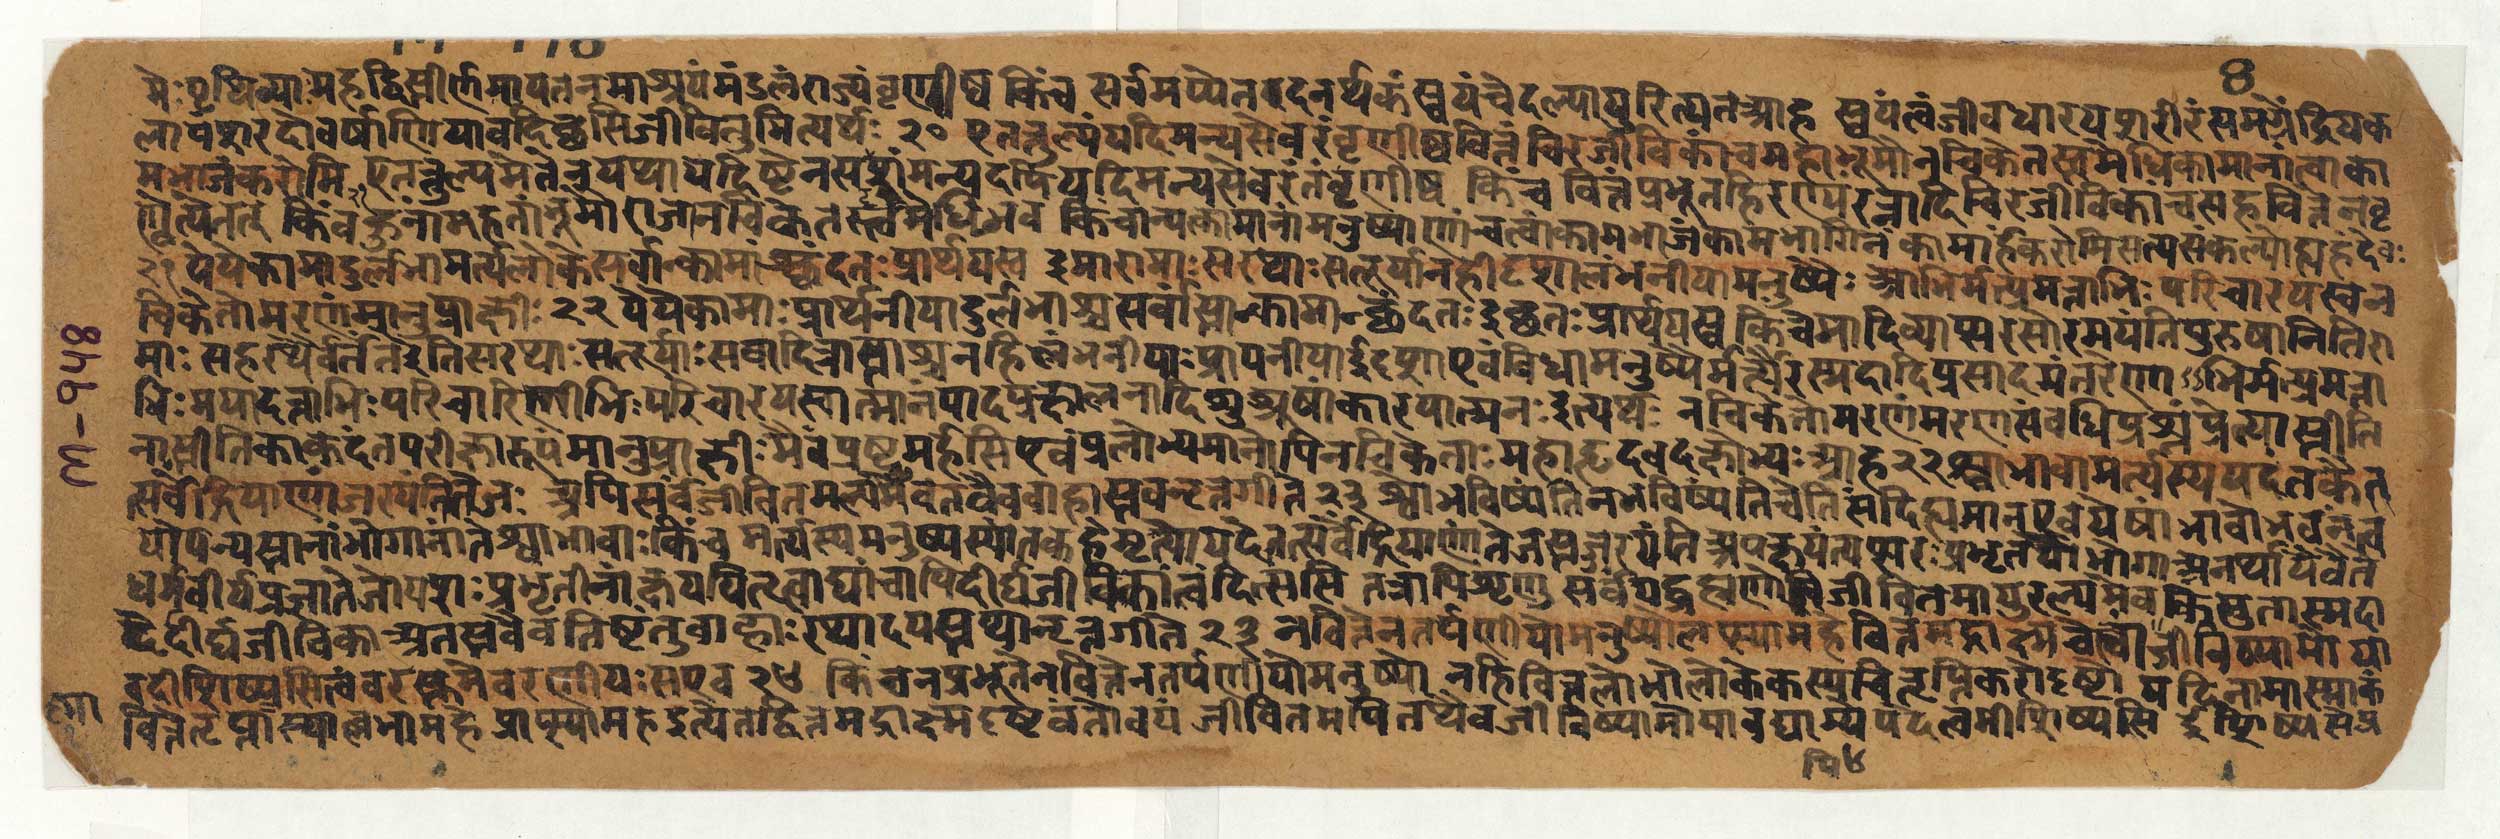 ४
मेः पृथिव्या महद्विस्तीर्णमायतनमाश्रयं मंडलं राज्यं वृणीष्व किंच सर्वमप्येतदनर्थकं स्वयंचेदल्पायुरित्यत आह स्वयंत्वंजीव धारय शरीरं समग्रेंद्रियक
लापं शरदो वर्षाणि यावदिच्छसि जीवितुमित्यर्थः २० एतत्तुल्यं यदि मन्यसे वरं वृणीष्व वित्तं चिरजीविकां च महाभूमौ नचिकेतस्त्वमेधि कामानां त्वा का
मभाजं करोमि एतत्तुल्यमेतेन यथा पदिष्टेन सदृशं मन्यदपि यदि मन्यसे वरं तं वृणीष्व किंच वित्तं प्रभूतहिरण्यरत्नादि चिरजीविकां च सह वित्तेन वृ
णीष्वेत्येतत् किं बहुना महतां भूमौ राजा नचिकेतस्त्वमेधि भव किंचान्यत्कामानां मनुष्याणां च त्वां कामभाजं कामभागिनं कामार्हं करोमि सत्यसंकल्पो ह्यहं देवः
२१ ये ये कामा दुर्लभा मर्त्यलोके सर्वान्कामांच्छंदतः प्रार्थयस्व इमा रामाः सरथाः सतूर्या नहीदृशा लंभनीया मनुष्यैः आभिर्मत्प्रमत्ताभिः परिचारयस्व न
चिकेतो मरणं मानुप्राक्षीः २२ ये ये कामाः प्रार्थनीया दुर्लभाश्च सर्वांस्तान्कामान्च्छंदतः इच्छतः प्रार्थयस्व किंचेमा दिव्याप्सरसो रमयंति पुरुषानिति रा
माः सह रथैर्वर्तंत इति सरथाः सतूर्याः सवादित्रास्ताश्च नहि लंभनीयाः प्रापनीया ईदृशा एवंविधा मनुष्यैर्मर्त्यैरस्मदादिप्रसादमंतरेण ऽऽभिर्मत्प्रमत्ता
भिः मया दत्ताभिः परिचारिणीभिः परिचारयस्वात्मानं पादप्रक्षालनादिशुश्रूषां कारयात्मनः इत्यर्थः नचिकेतो मरणं मरणसंबधि प्रश्नं प्रेत्यास्तीति
नास्तीति काकदंतपरीक्षारूपं मानुप्राक्षीः मैवं प्रष्टुमर्हसि एवं प्रलोभ्यमानोपि नचिकेताः महाह्रदवदक्षोभ्यः आह २२ श्वोभावा मर्त्यस्य यदंतकैत
त्सर्वेंद्रियाणां जरयंति तेजः अपि सर्वं जीवितमल्पमेव तवैव वाहास्तव नृत्तगीते २३ श्वो भविष्यंति न भविष्यंति चेति संदिह्यमान एव येषां भावो भवनं त्व
योपन्यस्तानां भोगानां ते श्वोभावाः किंच मर्त्यस्य मनुष्यस्यांतक हे मृत्यो यदेतत्सर्वेंद्रियाणां तेजस्तज्जरयंति अपक्षयंत्यप्सरः प्रभृतयो भोगा अनर्थायैवैते
धर्मवीर्यप्रज्ञातेजोयशः प्रभृतीनां क्षपयितृत्वाद्यां चापि दीर्घजीविकां त्वं दित्ससि तत्रापि शृणु सर्वं यद्ब्रह्मणोपि जीवितमायुरल्पमेव किमुतास्मदा
देर्दीर्घजीविका अतस्तवैव तिष्टंतु वाहाः रथादयस्तथा नृत्तगीते २३ न वित्तेन तर्पणीयो मनुष्यो लप्स्यामहे वित्तमद्राक्ष्म चेत्त्वा जीविष्यामो या
वदीशिष्यसि त्वं वरस्तु मे वरणीयः स एव २४ किंच न प्रभूतेन वित्तेन तर्पणीयो मनुष्यो नहि वित्तलाभो लोके कस्यचित्तृप्तिकरो दृष्टो यदि नामास्माकं
वित्ततृष्णा स्याल्लभामहे प्राप्स्यामह इत्येतद्वित्तमद्राक्ष्म दृष्टवंतो वयं जीवितमपि तथैव जीविष्यामो यावद्याम्ये पदे त्वमीशिष्यसि ईशिष्यसे प्र
M-948